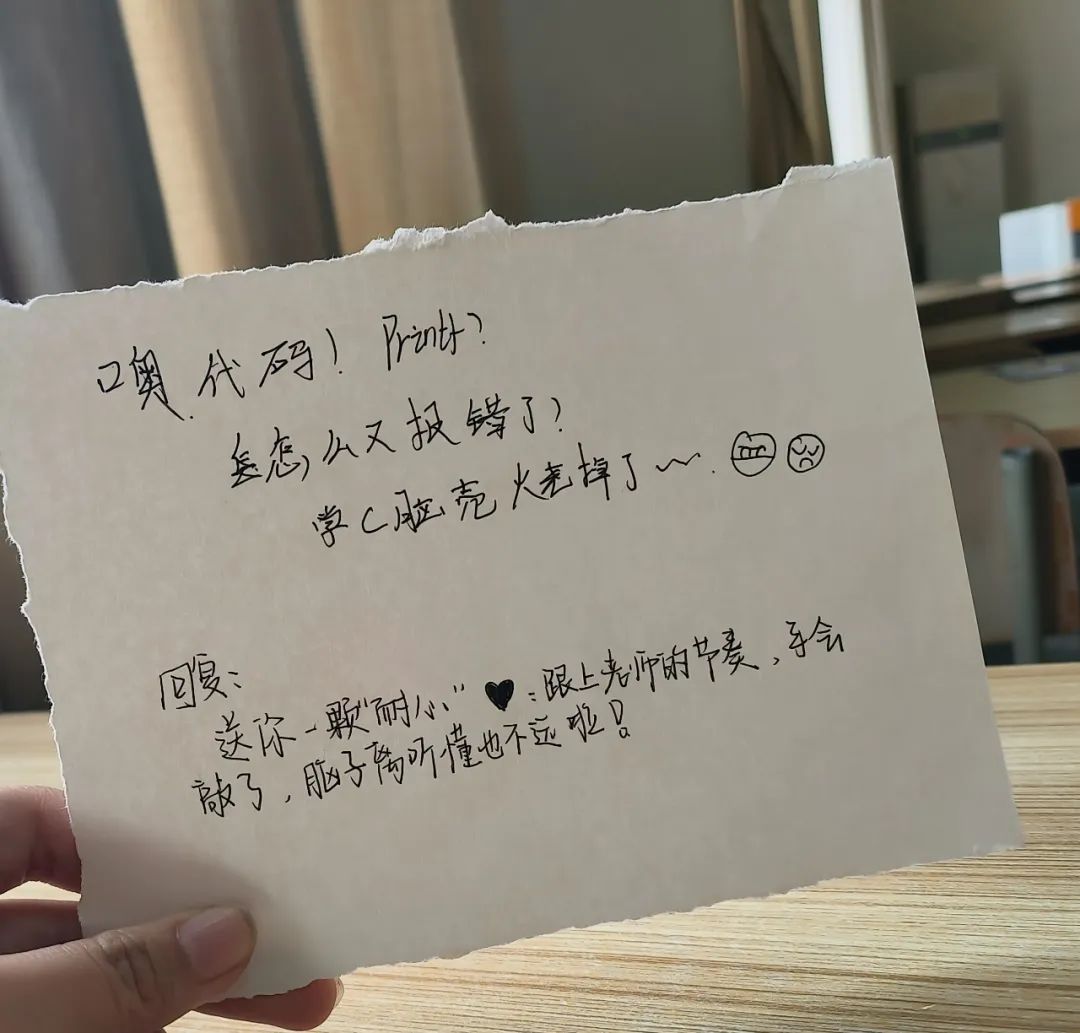 噢,代码!Printf?
怎怎么又报错了?
学C脑壳烧掉了~~.
回复:
送你一颗"耐心"♥:跟上老师的节奏,手会
敲了,脑子离听懂也不远啦!